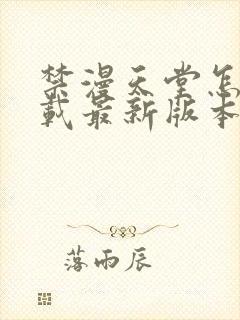 禁漫天堂怎
载最新版本
落雨辰